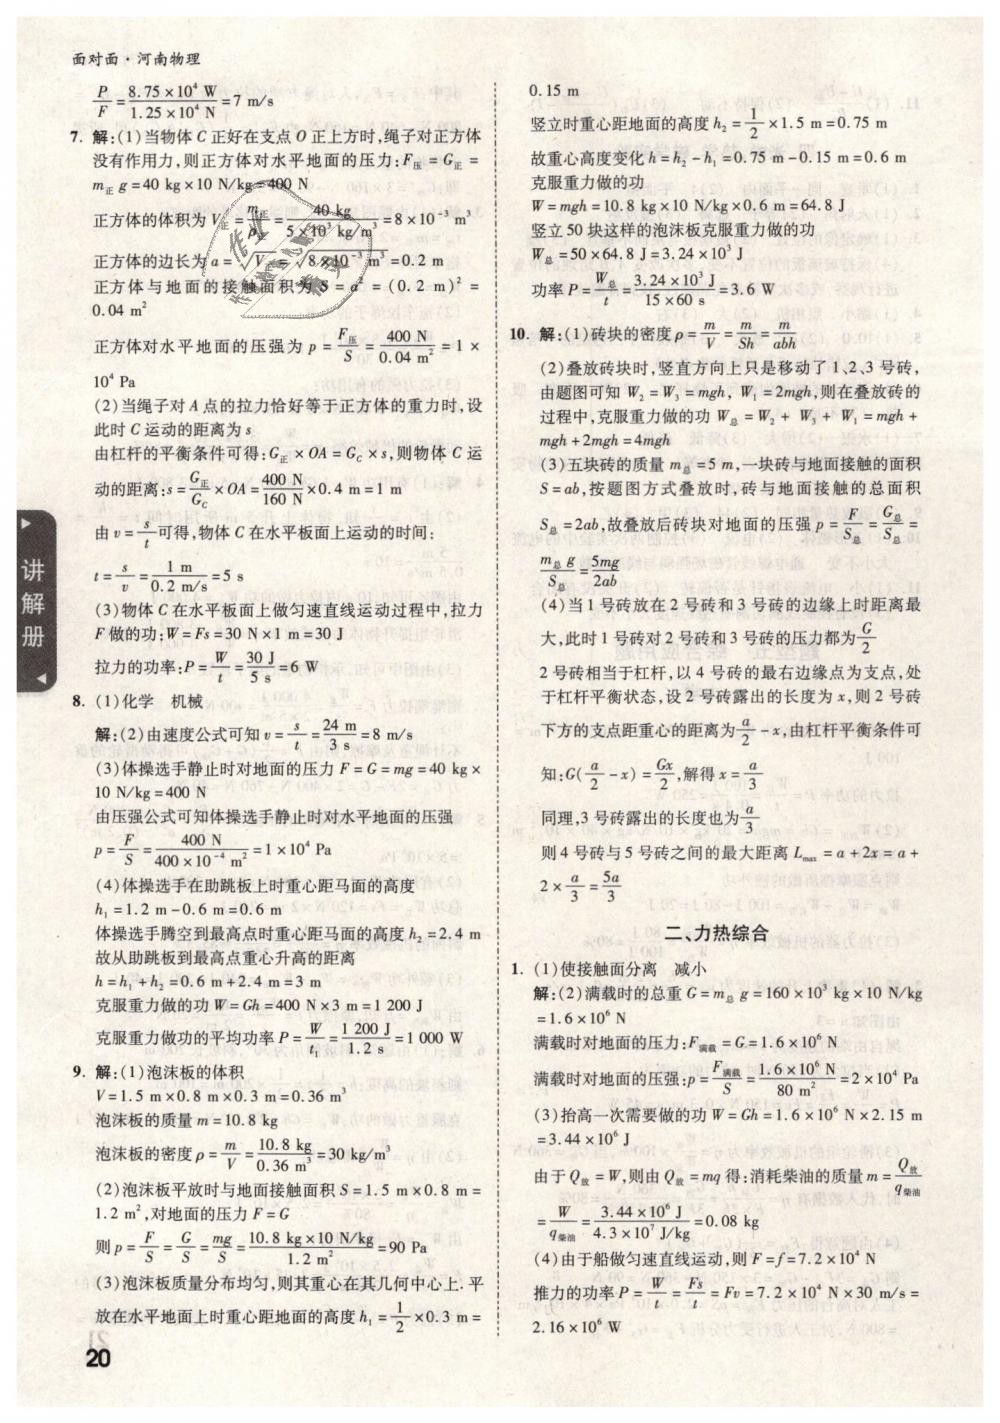 面对面·河南物理
P/F=8.75×10⁴ W/1.25×10⁴ N=7 m/s
7. 解:(1)当物体 C 正好在支点 O 正上方时,绳子对正方体
没有作用力,则正方体对水平地面的压力:F压=G正=
m正g=40 kg×10 N/kg=400 N
正方体的体积为 V=m正/ρ正=40 kg/5×10³ kg/m³=8×10⁻³ m³
正方体的边长为 a=³√V=³√8×10⁻³ m³=0.2 m
正方体与地面的接触面积为 S=a²=(0.2 m)²=
0.04 m²
正方体对水平地面的压强为 p=F压/S=400 N/0.04 m²=1×
10⁴ Pa
(2)当绳子对 A 点的拉力恰好等于正方体的重力时,设
此时 C 运动的距离为 s
由杠杆的平衡条件可得:G正×OA=GC×s,则物体 C 运
动的距离:s=G正/GC×OA=400 N/160 N×0.4 m=1 m
由 v=s/t可得,物体 C 在水平板面上运动的时间:
t=s/v=1 m/0.2 m/s=5 s
(3)物体 C 在水平板面上做匀速直线运动过程中,拉力
F 做的功:W=Fs=30 N×1 m=30 J
拉力的功率:P=W/t=30 J/5 s=6 W
8. (1)化学 机械
解:(2)由速度公式可知 v=s/t=24 m/3 s=8 m/s
(3)体操选手静止时对地面的压力 F=G=mg=40 kg×
10 N/kg=400 N
由压强公式可知体操选手静止时对水平地面的压强
p=F/S=400 N/400×10⁻⁴ m²=1×10⁴ Pa
(4)体操选手在助跳板上时重心距马面的高度
h₁=1.2 m-0.6 m=0.6 m
体操选手腾空到最高点时重心距马面的高度 h₂=2.4 m
故从助跳板到最高点重心升高的距离
h=h₁+h₂=0.6 m+2.4 m=3 m
克服重力做的功 W=Gh=400 N×3 m=1 200 J
克服重力做功的平均功率 P=W/t₁=1 200 J/1.2 s=1 000 W
9. 解:(1)泡沫板的体积
V=1.5 m×0.8 m×0.3 m=0.36 m³
泡沫板的质量 m=10.8 kg
泡沫板的密度 ρ=m/V=10.8 kg/0.36 m³=30 kg/m³
(2)泡沫板平放时与地面接触面积 S=1.5 m×0.8 m=
1.2 m²,对地面的压力 F=G
则 p=F/S=G/S=mg/S=10.8 kg×10 N/kg/1.2 m²=90 Pa
(3)泡沫板质量分布均匀,则其重心在其几何中心上.平
放在水平地面上时重心距地面的高度 h₁=1/2×0.3 m=
0.15 m
竖立时重心距地面的高度 h₂=1/2×1.5 m=0.75 m
故重心高度变化 h=h₂-h₁=0.75 m-0.15 m=0.6 m
克服重力做的功
W=mgh=10.8 kg×10 N/kg×0.6 m=64.8 J
竖立 50 块这样的泡沫板克服重力做的功
W总=50×64.8 J=3.24×10³ J
功率 P=W总/t=3.24×10³ J/15×60 s=3.6 W
10. 解:(1)砖块的密度 ρ=m/V=m/Sh=m/abh
(2)叠放砖块时,竖直方向上只是移动了 1、2、3 号砖,
由题图可知 W₂=W₃=mgh, W₁=2mgh,则在叠放砖的
过程中,克服重力做的功 W总=W₂+W₃+W₁=mgh+
mgh+2mgh=4mgh
(3)五块砖的质量 m总=5 m,一块砖与地面接触的面积
S=ab,按题图方式叠放时,砖与地面接触的总面积
S总=2ab,故叠放后砖块对地面的压强 p=F/S总=G总/S总=
m总g/S总=5mg/2ab
(4)当 1 号砖放在 2 号砖和 3 号砖的边缘上时距离最
大,此时 1 号砖对 2 号砖和 3 号砖的压力都为G/2
2 号砖相当于杠杆,以 4 号砖的最右边缘点为支点,处
于杠杆平衡状态,设 2 号砖露出的长度为 x,则 2 号砖
下方的支点距重心的距离为a/2-x,由杠杆平衡条件可
知:G(a/2-x)=Gx/2,解得 x=a/3
同理,3 号砖露出的长度也为a/3
则 4 号砖与 5 号砖之间的最大距离 Lmax=a+2x=a+
2×a/3=5a/3
二、力热综合
1. (1)使接触面分离 减小
解:(2)满载时的总重 G=m总g=160×10³ kg×10 N/kg
=1.6×10⁶ N
满载时对地面的压力:F满载=G=1.6×10⁶ N
满载时对地面的压强:p=F满载/S=1.6×10⁶ N/80 m²=2×10⁴ Pa
(3)抬高一次需要做的功 W=Gh=1.6×10⁶ N×2.15 m
=3.44×10⁶ J
由于 Q放=W,则由 Q放=mq 得:消耗柴油的质量 m=Q放/q柴油
=W/q柴油=3.44×10⁶ J/4.3×10⁷ J/kg=0.08 kg
(4)由于船做匀速直线运动,则 F=f=7.2×10⁴ N
推力的功率 P=W/t=Fs/t=Fv=7.2×10⁴ N×30 m/s=
2.16×10⁶ W
讲解册
20